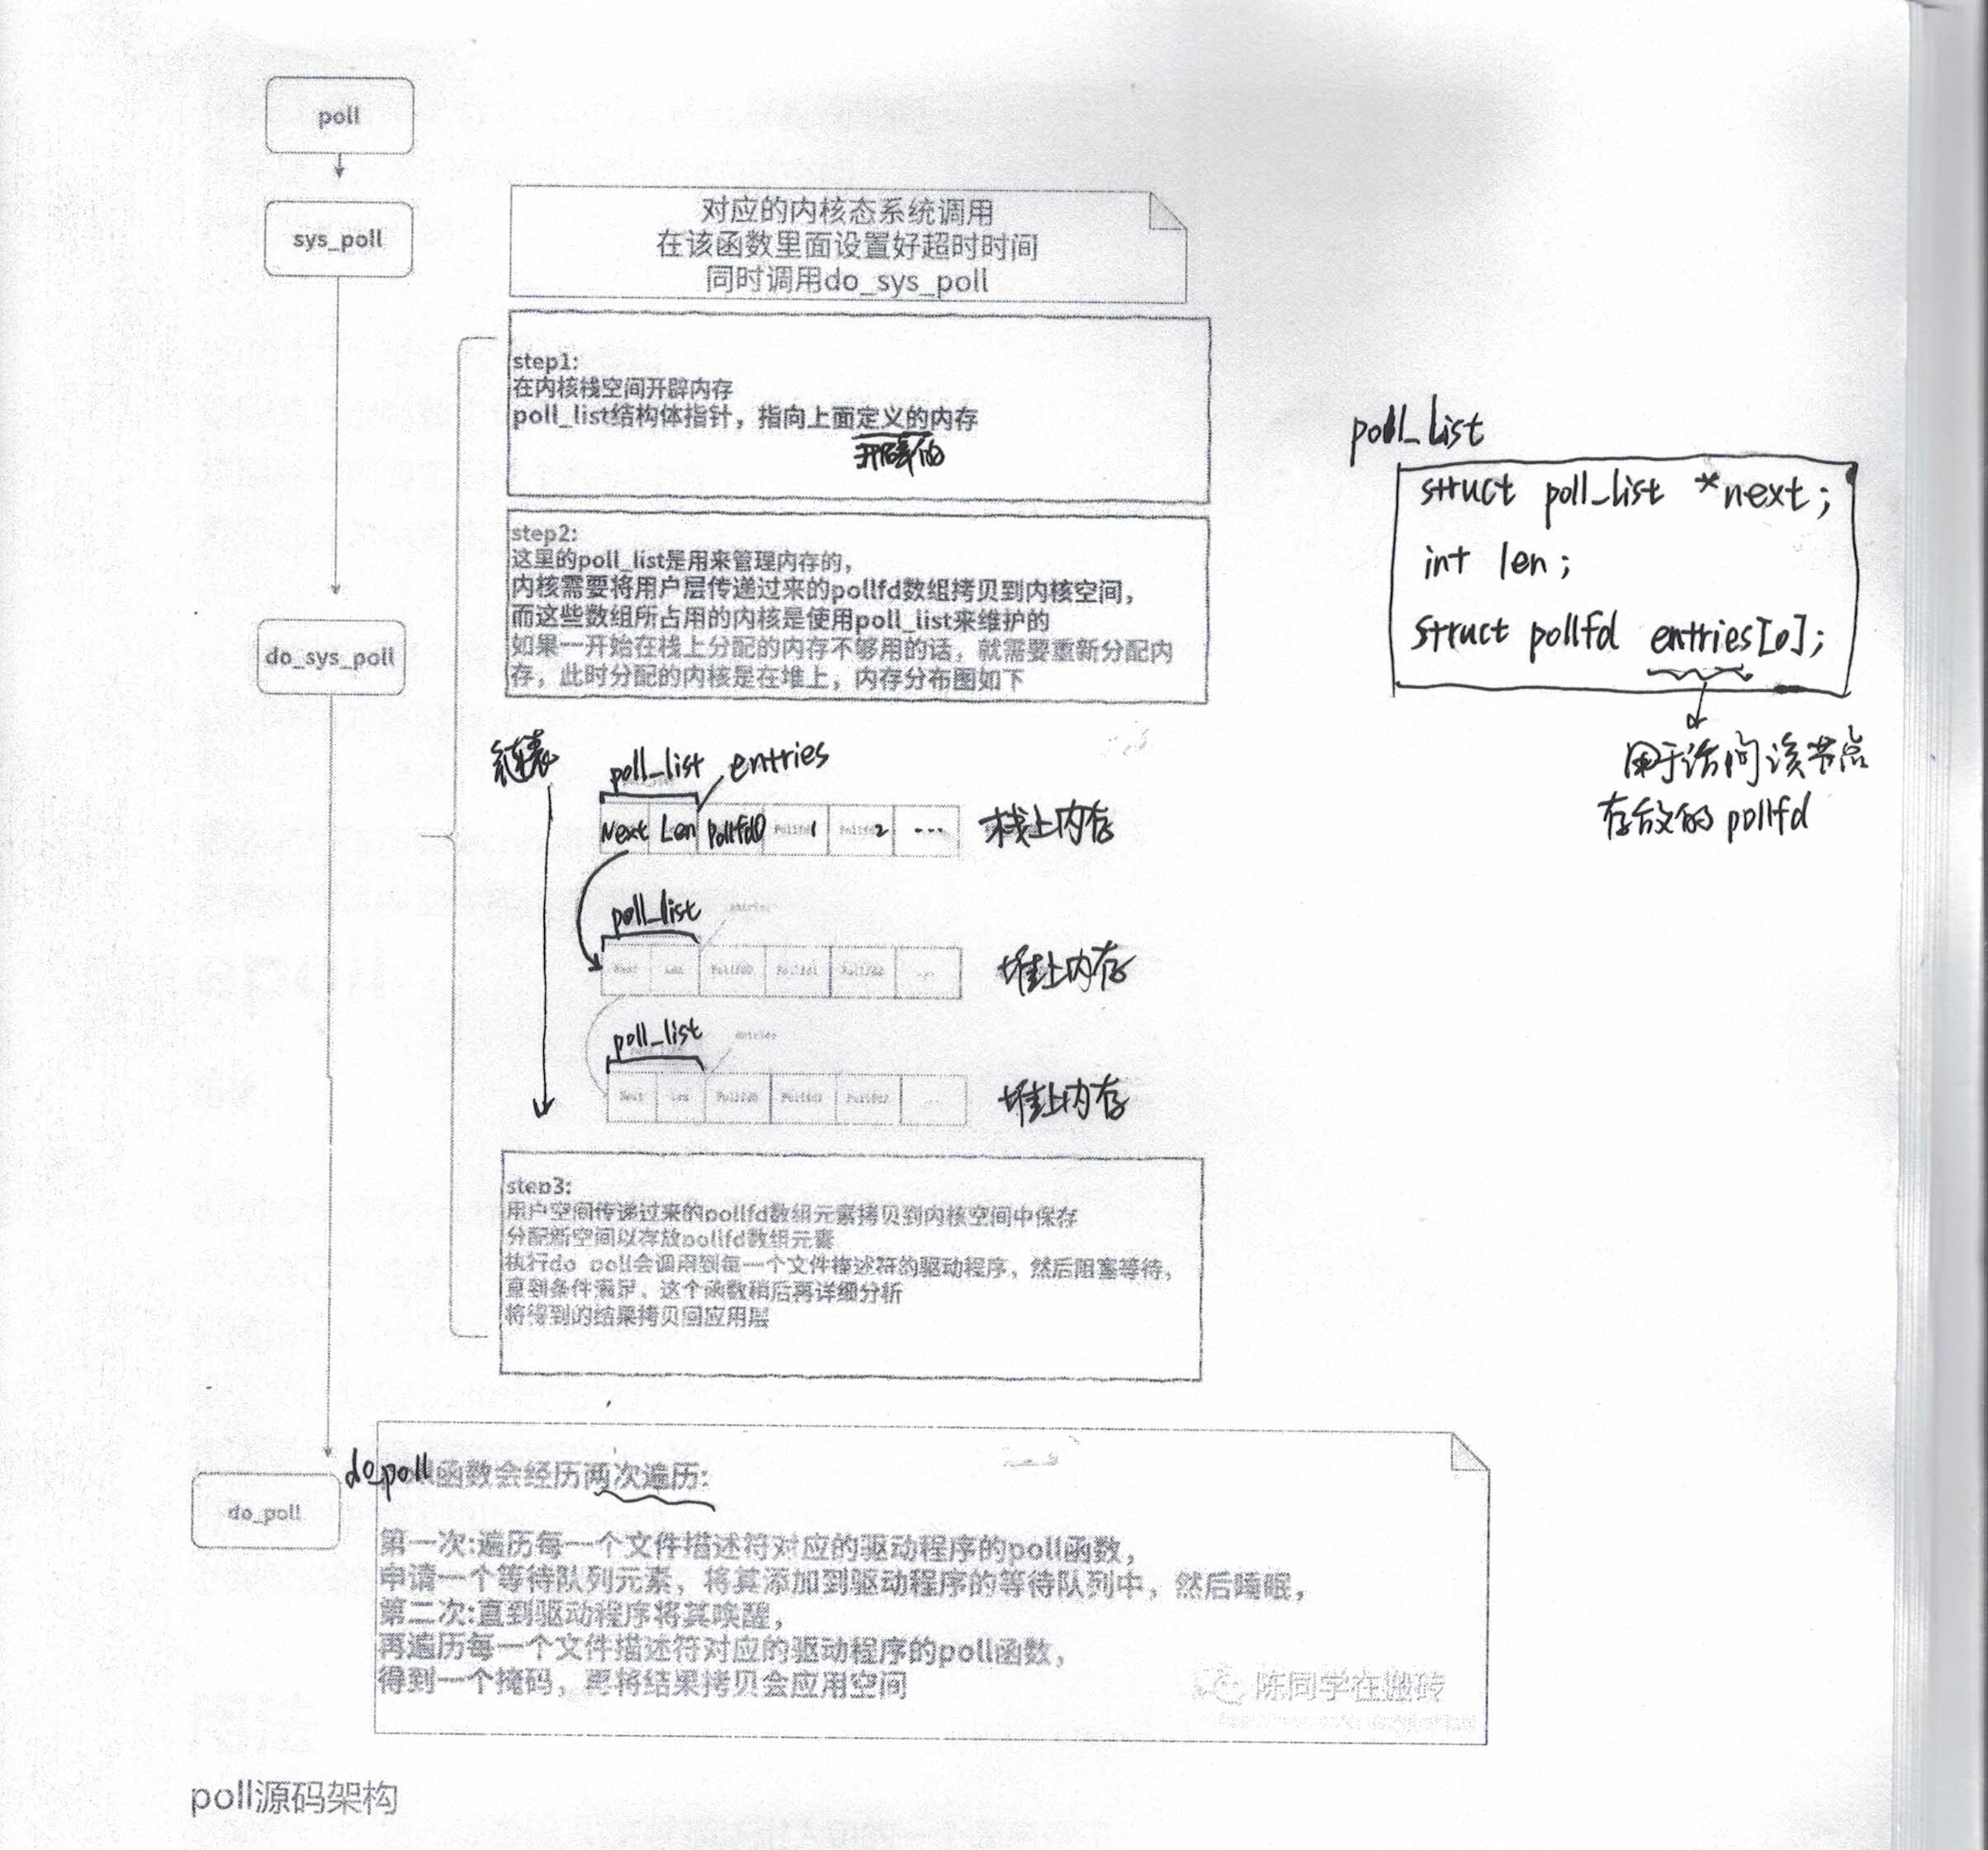 poll
sys_poll
对应的内核态系统调用
在该函数里面设置好超时时间
同时调用do_sys_poll
step1:
在内核栈空间开辟内存
poll_list结构体指针，指向上面定义的内存
开辟的
poll_list
struct poll_list *next;
int len;
struct pollfd entries[0];
用于访问该节点
存放的pollfd
step2:
这里的poll_list是用来管理内存的，
内核需要将用户层传递过来的pollfd数组拷贝到内核空间，
而这些数组所占用的内核是使用poll_list来维护的
如果一开始在栈上分配的内存不够用的话，就需要重新分配内
存，此时分配的内核是在堆上，内存分布图如下
do_sys_poll
链表
poll_list entries
Next Len Pollfd0 Pollfd1 Pollfd2 ... 栈上内存
poll_list entries
Next Len Pollfd0 Pollfd1 Pollfd2 ... 堆上内存
poll_list entries
Next Len Pollfd0 Pollfd1 Pollfd2 ... 堆上内存
step3:
用户空间传递过来的pollfd数组元素拷贝到内核空间中保存
分配新空间以存放pollfd数组元素
执行do_poll会调用到每一个文件描述符的驱动程序，然后阻塞等待，
直到条件满足，这个函数稍后再详细分析
将得到的结果拷贝回应用层
do_poll
do_poll函数会经历两次遍历:
第一次:遍历每一个文件描述符对应的驱动程序的poll函数，
申请一个等待队列元素，将其添加到驱动程序的等待队列中，然后睡眠，
第二次:直到驱动程序将其唤醒，
再遍历每一个文件描述符对应的驱动程序的poll函数，
得到一个掩码，再将结果拷贝会应用空间
陈同学在搬砖
poll源码架构